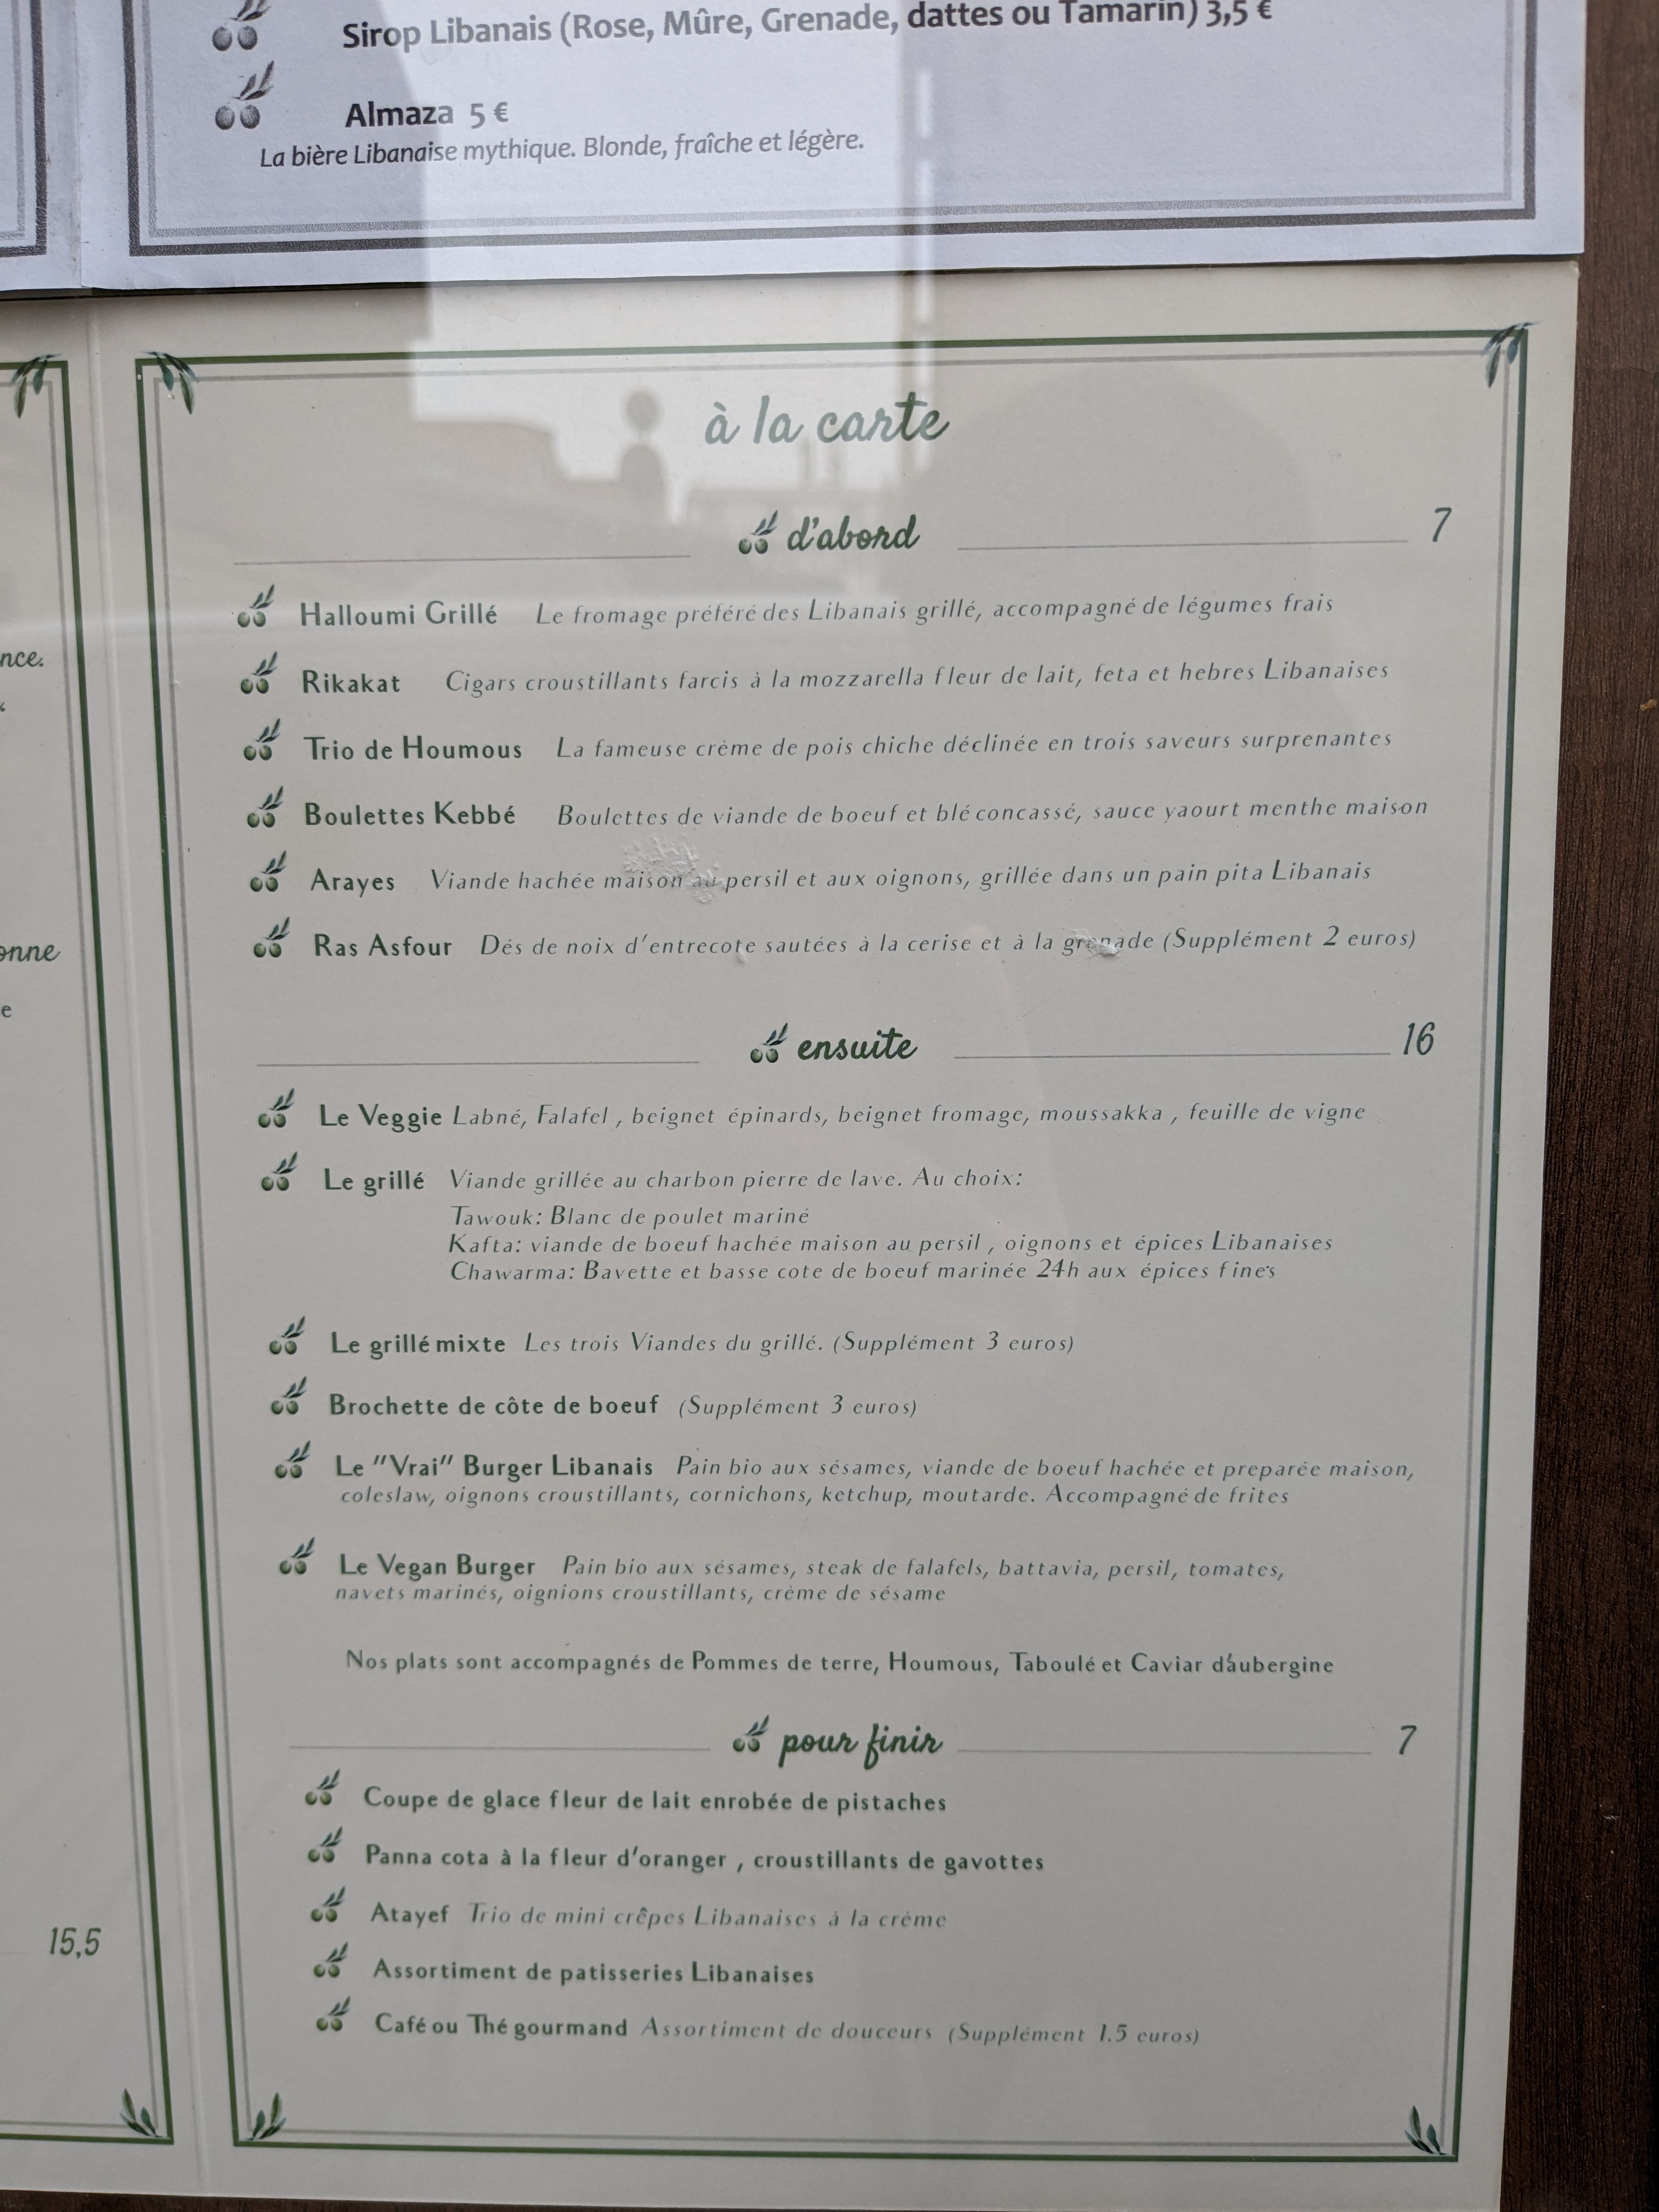 Sirop Libanais (Rose, Mûre, Grenade, dattes ou Tamarin) 3,5 €
Almaza 5 €
La bière Libanaise mythique. Blonde, fraîche et légère.
à la carte
d'abord 7
Halloumi Grillé Le fromage préféré des Libanais grillé, accompagné de légumes frais
Rikakat Cigars croustillants farcis à la mozzarella fleur de lait, feta et hebres Libanaises
Trio de Houmous La fameuse crème de pois chiche déclinée en trois saveurs surprenantes
Boulettes Kebbé Boulettes de viande de boeuf et blé concassé, sauce yaourt menthe maison
Arayes Viande hachée maison au persil et aux oignons, grillée dans un pain pita Libanais
Ras Asfour Dés de noix d'entrecote sautées à la cerise et à la grenade (Supplément 2 euros)
ensuite 16
Le Veggie Labné, Falafel , beignet épinards, beignet fromage, moussakka , feuille de vigne
Le grillé Viande grillée au charbon pierre de lave. Au choix:
Tawouk: Blanc de poulet mariné
Kafta: viande de boeuf hachée maison au persil , oignons et épices Libanaises
Chawarma: Bavette et basse cote de boeuf marinée 24h aux épices fines
Le grillé mixte Les trois Viandes du grillé. (Supplément 3 euros)
Brochette de côte de boeuf (Supplément 3 euros)
Le "Vrai" Burger Libanais Pain bio aux sésames, viande de boeuf hachée et preparée maison,
coleslaw, oignons croustillants, cornichons, ketchup, moutarde. Accompagné de frites
Le Vegan Burger Pain bio aux sésames, steak de falafels, battavia, persil, tomates,
navets marinés, oignions croustillants, crème de sésame
Nos plats sont accompagnés de Pommes de terre, Houmous, Taboulé et Caviar d'aubergine
pour finir 7
Coupe de glace fleur de lait enrobée de pistaches
Panna cota à la fleur d'oranger , croustillants de gavottes
Atayef Trio de mini crêpes Libanaises à la crème
Assortiment de patisseries Libanaises
Café ou Thé gourmand Assortiment de douceurs (Supplément 1.5 euros)
nce.
onne
e
15,5